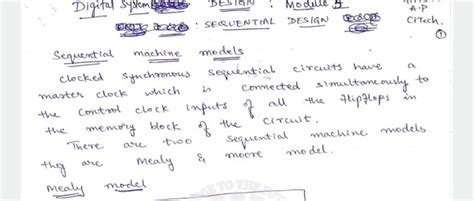 Digital System DESIGN : Module 4
: SEQUENTIAL DESIGN
A.P
CiTech.
①
Sequential machine models
clocked synchronous sequential circuits have a
master clock which is connected simultaneously to
the control clock inputs of all the flipflops in
the memory block of the circuit.
There are two sequential machine models
they are Mealy & moore model.
Mealy model